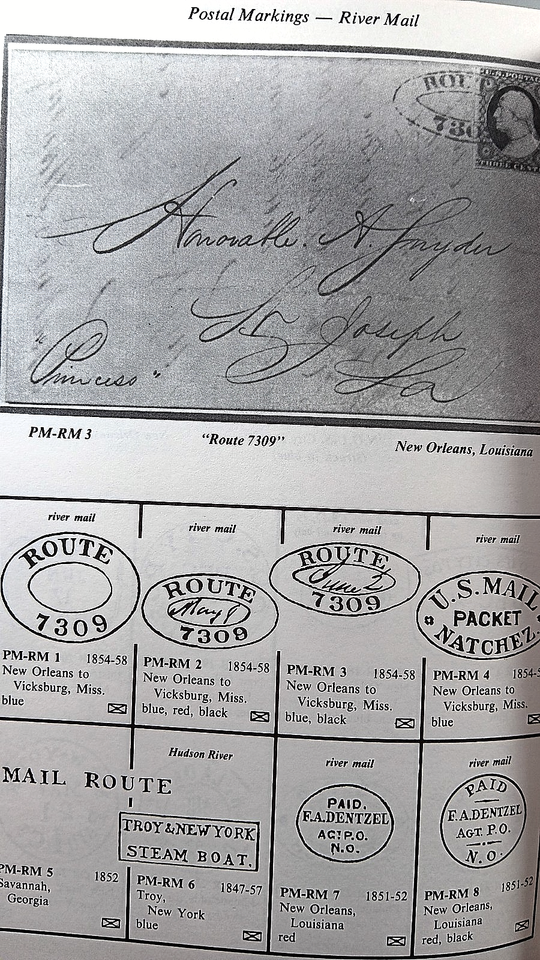 Postal Markings — River Mail
ROUT
730
U.S. POSTAG
THREE CENT
Honorable. A. Snyder
St Joseph
La
"Princess"
PM-RM 3 "Route 7309" New Orleans, Louisiana
river mail
ROUTE
7309
PM-RM 1 1854-58
New Orleans to
Vicksburg, Miss.
blue
river mail
ROUTE
May 8
7309
PM-RM 2 1854-58
New Orleans to
Vicksburg, Miss.
blue, red, black
river mail
ROUTE
7309
PM-RM 3 1854-58
New Orleans to
Vicksburg, Miss.
blue, black
river mail
U.S. MAIL
PACKET
NATCHEZ.
PM-RM 4 1854-5
New Orleans to
Vicksburg, Miss.
blue
MAIL ROUTE
PM-RM 5 1852
Savannah,
Georgia
Hudson River
TROY & NEW YORK
STEAM BOAT.
PM-RM 6 1847-57
Troy,
New York
blue
river mail
PAID.
F.A.DENTZEL
AGT. P.O.
N.O.
PM-RM 7 1851-52
New Orleans,
Louisiana
red
river mail
PAID
F.A.DENTZEL
AGT. P.O.
N.O.
PM-RM 8 1851-52
New Orleans,
Louisiana
red, black